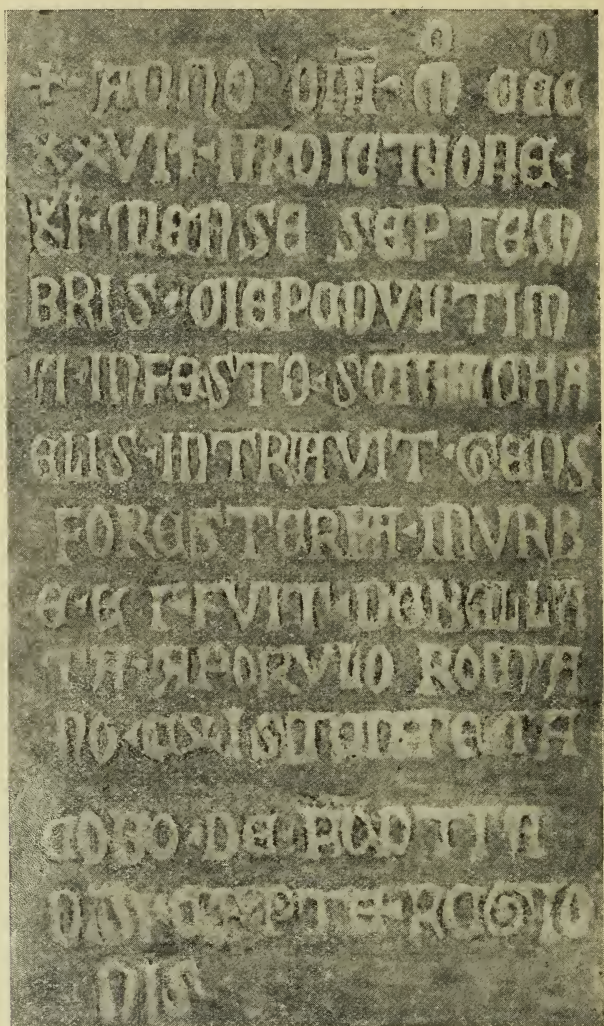 + ANNO DM̅ · Mo CCCo
XXVII · INDICTIONE ·
XI · MENSE SEPTEM
BRIS · DIE PEDVLTIM
A · IN FESTO · S MICHA
ELIS · INTRAVIT · GENS
FORESTERIA · IN VRB
E · ET · FVIT · DEBELLA
TA · A POPVLO ROMA
NO · EXISTENTE IA
COBO · DE · PO TII A
CAPITE REGIO
NIS